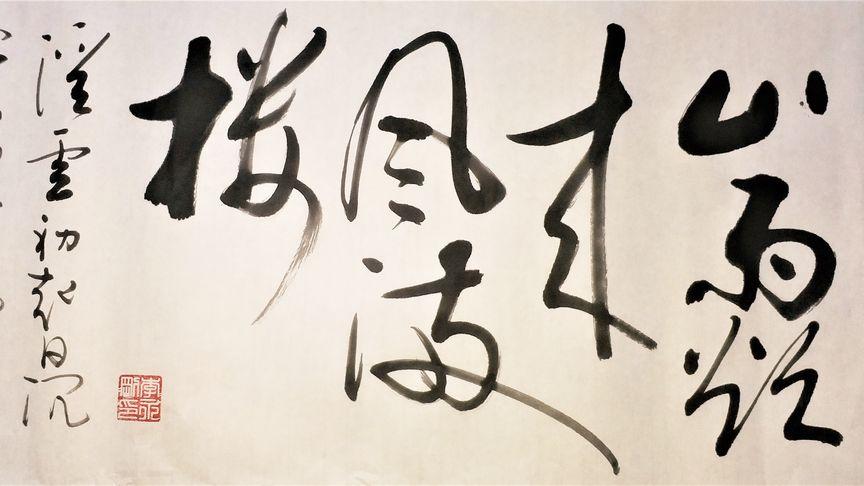 山雨欲
来
風满
楼
溪雲初起日沉